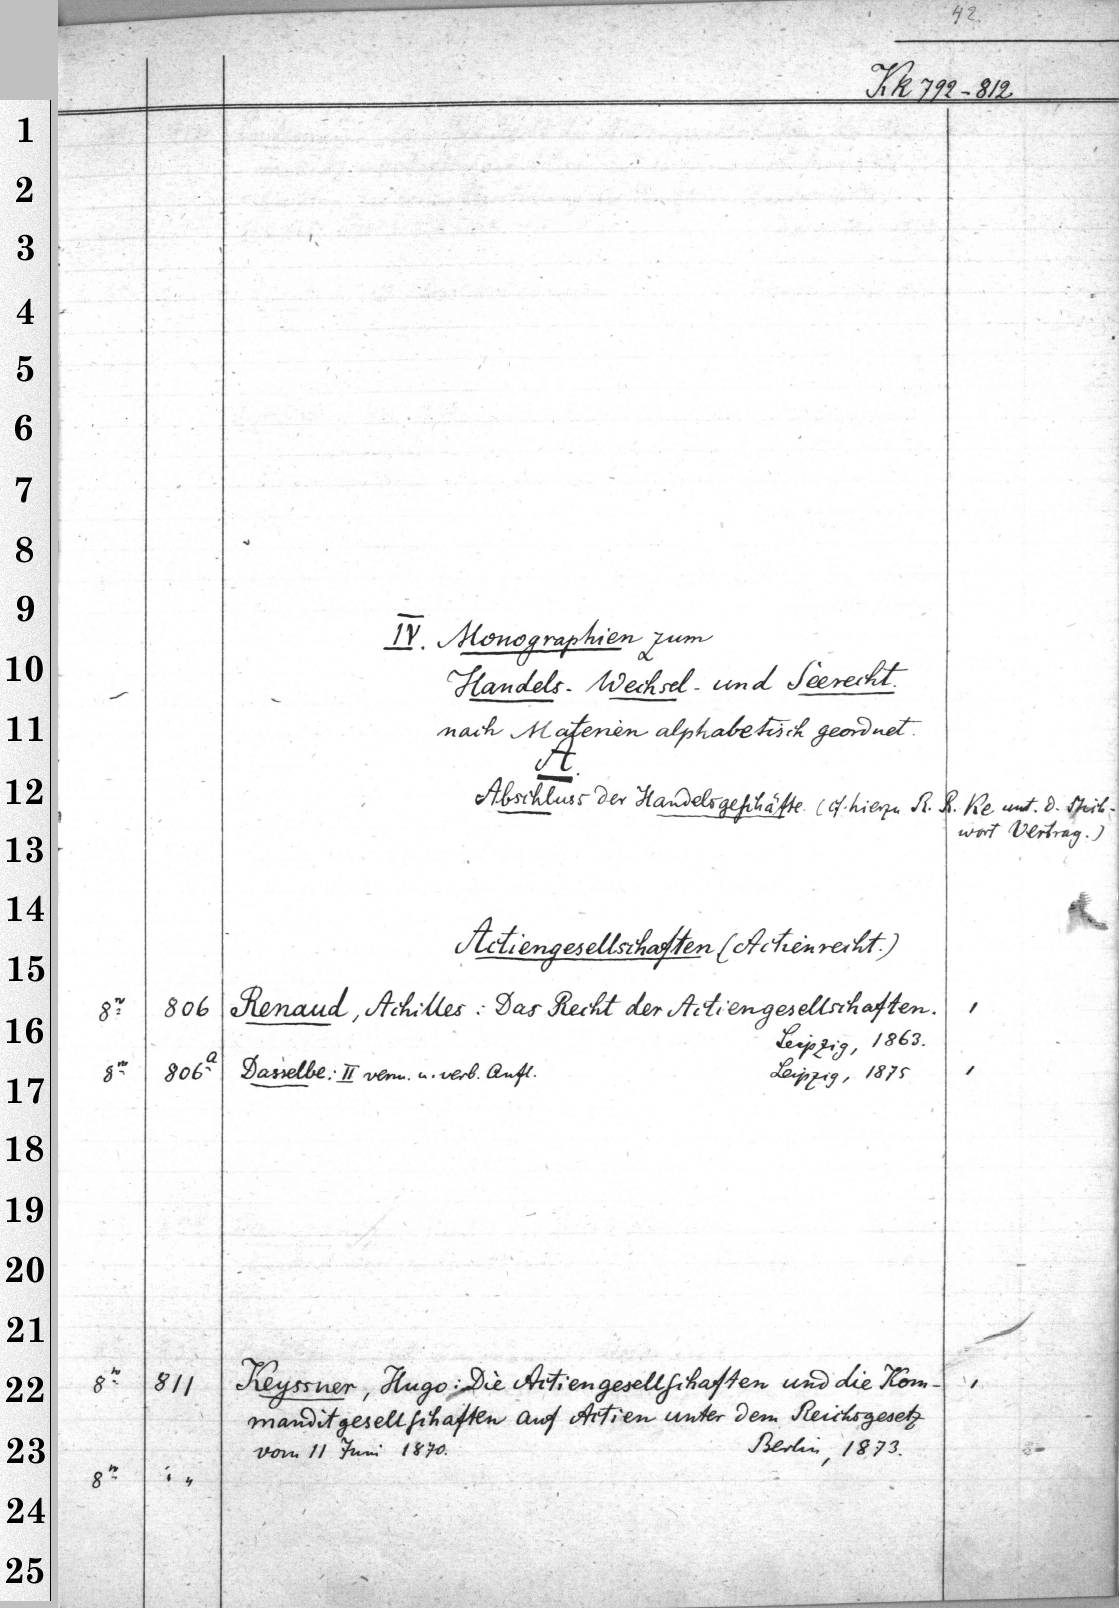 42.
Kk 792-812
1
2
3
4
5
6
7
8
9
IV. Monographien zum
10
Handels- Wechsel- und Seerecht.
11
nach Materien alphabetisch geordnet.
A.
12
Abschluss der Handelsgeschäfte. (cf. hierzu R. R. Ke unt. d. Stich-
wort Vertrag.)
13
14
Actiengesellschaften (Actienrecht.)
15
8º 806 Renaud, Achilles: Das Recht der Actiengesellschaften. '
16
Leipzig, 1863.
8º 806a Dasselbe: II verm. u. verb. Aufl. Leipzig, 1875 '
17
18
19
20
21
22
8º 811 Keyssner, Hugo: Die Actiengesellschaften und die Kom- '
manditgesellschaften auf Actien unter dem Reichsgesetz
23
vom 11 Juni 1870. Berlin, 1873.
8º
24
25